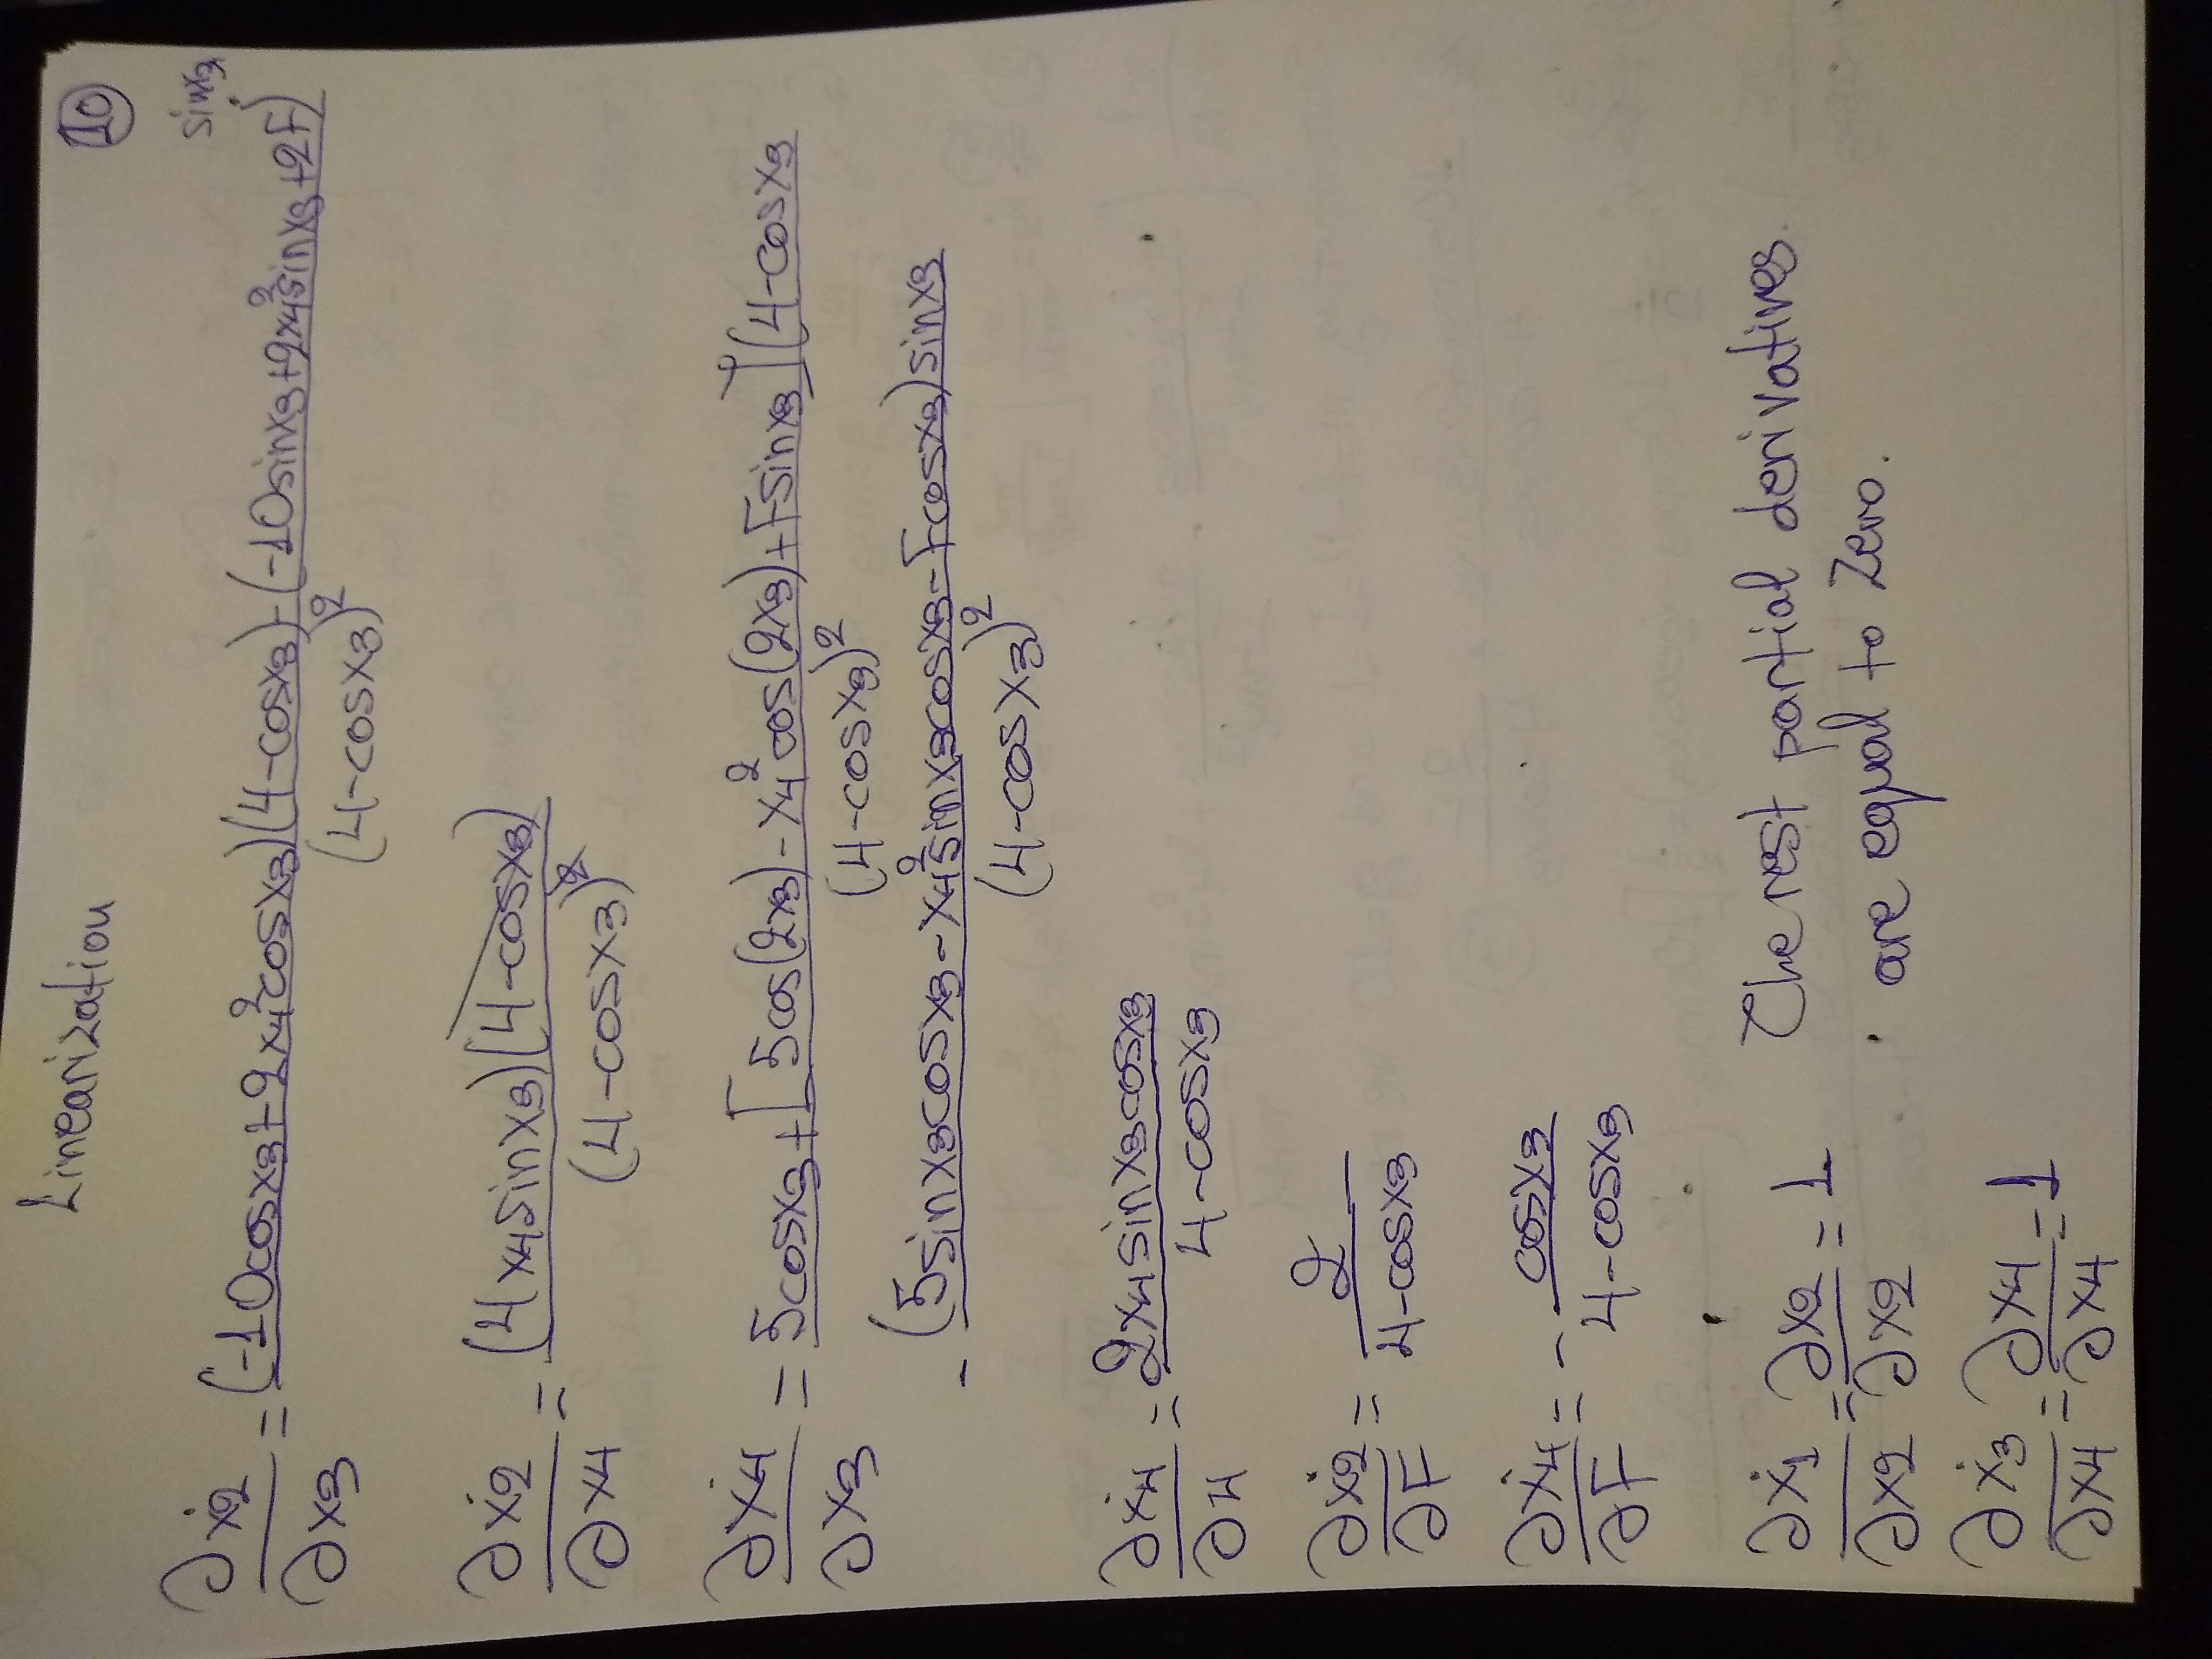 Linearization
⑩
∂ẋ2/∂x3 = (-10cosx3+2x4²cosx3)(4-cosx3)-(-10sinx3+2x4²sinx3+2F) sinx3 / (4-cosx3)²
∂ẋ2/∂x4 = (4x4sinx3)(4-cosx3) / (4-cosx3)²
∂ẋ4/∂x3 = 5cosx3+[5cos(2x3)-x4²cos(2x3)+Fsinx3](4-cosx3 / (4-cosx3)²
- (5sinx3cosx3-x4²sinx3cosx3-Fcosx3)sinx3 / (4-cosx3)²
∂ẋ4/∂4 = 2x4sinx3cosx3 / 4-cosx3
∂ẋ2/∂F = 2 / 4-cosx3
∂ẋ4/∂F = - cosx3 / 4-cosx3
∂ẋ1/∂x2 = ∂x2/∂x2 = 1 The rest partial derivatives
∂ẋ3/∂x4 = ∂x4/∂x4 = 1 are equal to zero.